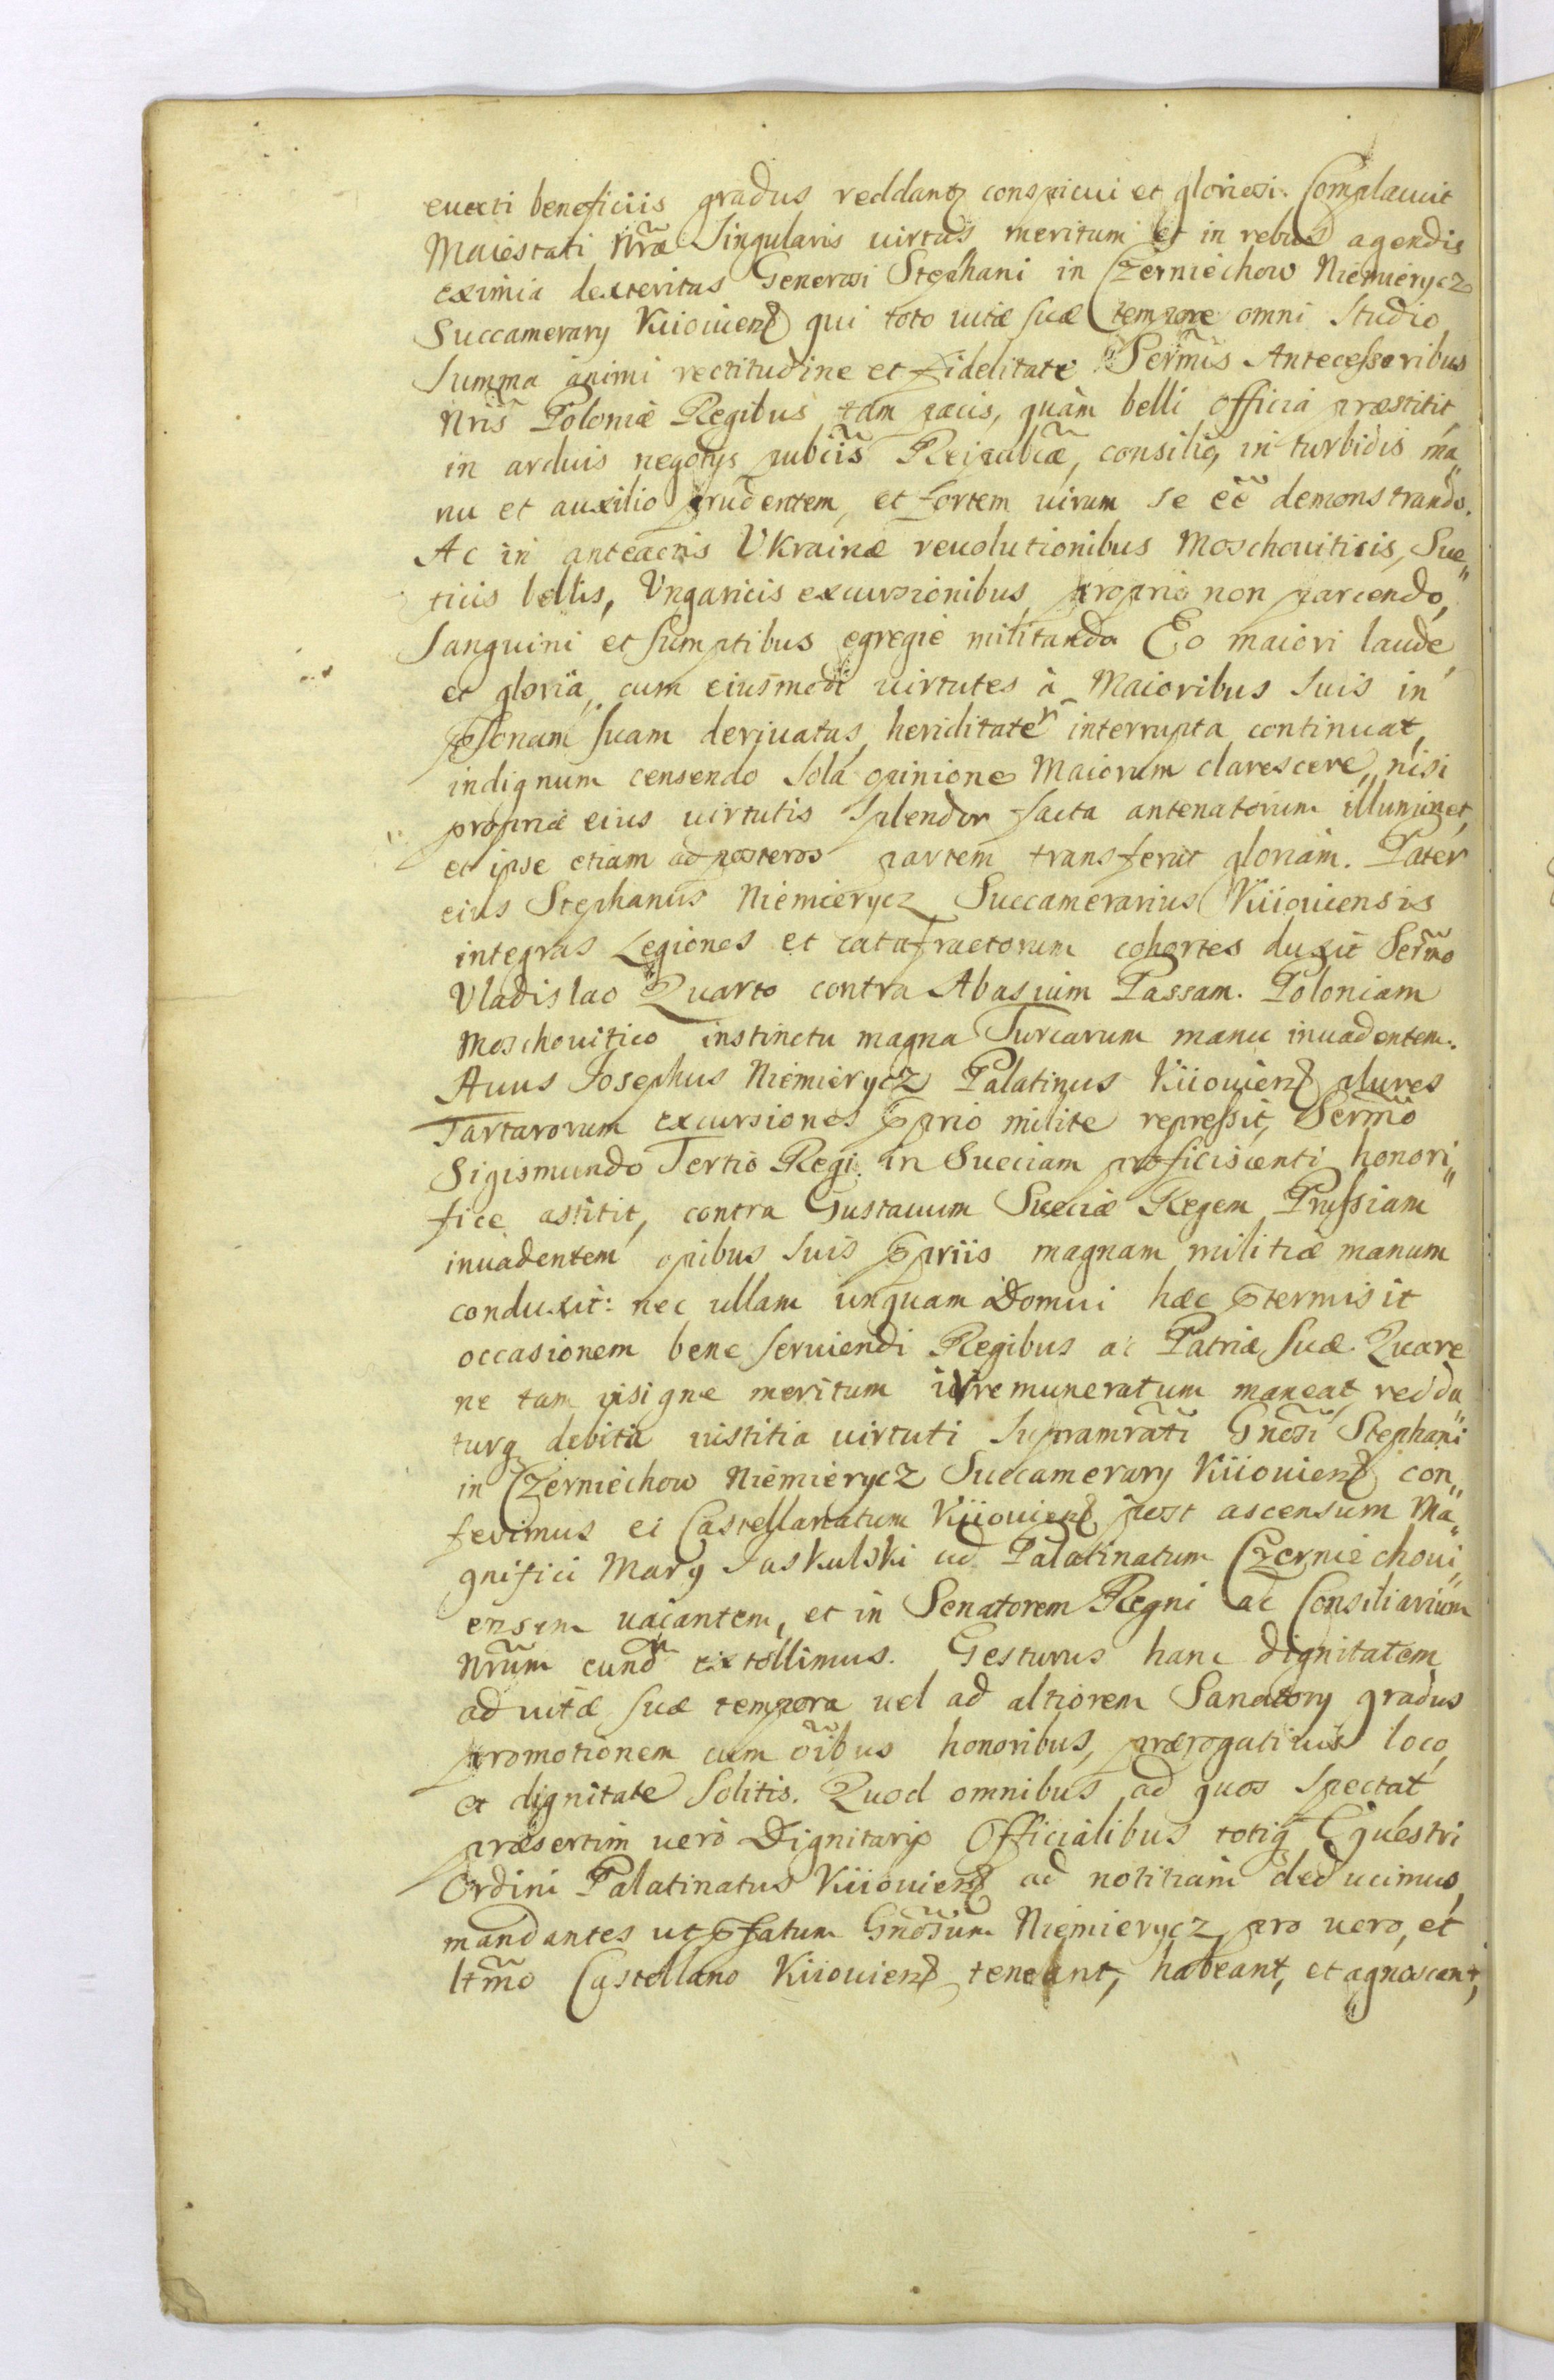 euecti beneficiis gradus reddantq conspicui et gloriosi. Complacuit
Maiestati Nr̃æ Singularis uirtus meritum et in rebus agendis
eximia dexteritas Generosi Stephani in Czerniechow Niemierycz
Succamerary Kiiouien̄ qui toto uitæ suæ tempore omni Studio,
Summa animi rectitudine et Fidelitate Serm̃is Antecessoribus
Nrĩs Poloniæ Regibus tam pacis, quàm belli officia præstitit,
in arduis negotys pubcĩs Reipubcæ̃, consilio, in turbidis ma„
nu et auxilio prudentem, et Fortem uirum se eẽ demonstrando.
Ac in anteactis Vkrainæ reuolutionibus Moschouiticis, Sue„
ticis bellis, Vngaricis excursionibus proprio non parcendo,
Sanguini et sumptibus egregiè militando Eo maiori laude
et gloria, cum eiusmodi uirtutes à Maioribus Suis in
psonam suam deriuatas, heriditate interrupta continuat,
indignum censendo Sola opinione Maiorum clarescere, nisi
propriæ eius uirtutis Splendor facta antenatorum illuminet,
et ipse etiam ad posteros partem transferat gloriam. Pater
eius Stephanus Niemierycz Succamerarius Kiiouiensis
integras Legiones et catafractorum cohortes duxit Serm̃o
Vladislao Quarto contra Abasuim Passam. Poloniam
Moschouitico instinctu magna Turcarum manu inuadentem.
Auus Josephus Niemierycz Palatinus Kiiouien̄ plures
Tartarorum excursiones pprio milite repressit, Serm̃o
Sigismundo Tertio Regi in Sueciam proficiscenti honori„
fice astitit, contra Gustauum Sueciæ Regem Prussiam
inuadentem opibus Suis ppriis magnam militiæ manum
conduxit: nec ullam unquam Domui hæc ptermisit
occasionem bene seruiendi Regibus ac Patriæ suæ. Quare
ne tam insigne meritum irremuneratum maneat, redda
turq debita iustitia uirtuti Supramratĩ Gnosĩ Stephani
in Czerniechow Niemierycz Succamerary Kiiouien̄ con„
ferimus ei Castellanatum Kiiouien̄ post ascensum Ma„
gnifici Mary Jaskulski ad Palatinatum Czerniechoui„
ensem uacantem, et in Senatorem Regni ac Consiliarium
Nrũm eund extollimus. Gesturus hanc dignitatem
ad uitæ suæ tempora uel ad altiorem Sanatory gradus
promotionem cum oĩbus honoribus, prærogatiuis loco,
et dignitate Solitis. Quod omnibus ad quos Spectat
præsertim uerò Dignitarys Officialibus totiq Equestri
Ordini Palatinatus Kiiouien̄ ad notitiam deducimus,
mandantes ut pfatum Gnosũm Niemierycz pro uero, et
ltm̃o Castellano Kiiouien̄ teneant, habeant, et agnoscant,